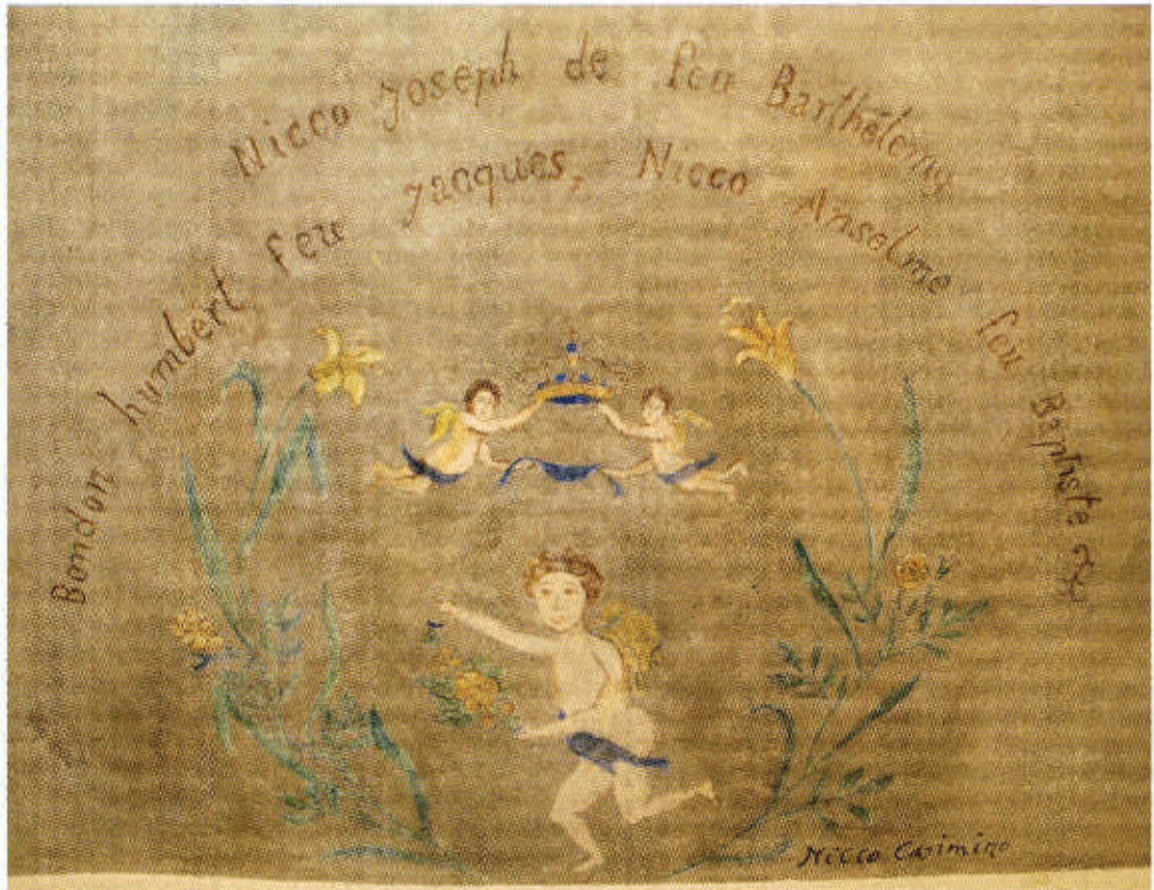 Nicco Joseph de feu Barthélemy
Bondon humbert feu Jacques, Nicco Anselme feu Baptiste
Nicco Casimiro